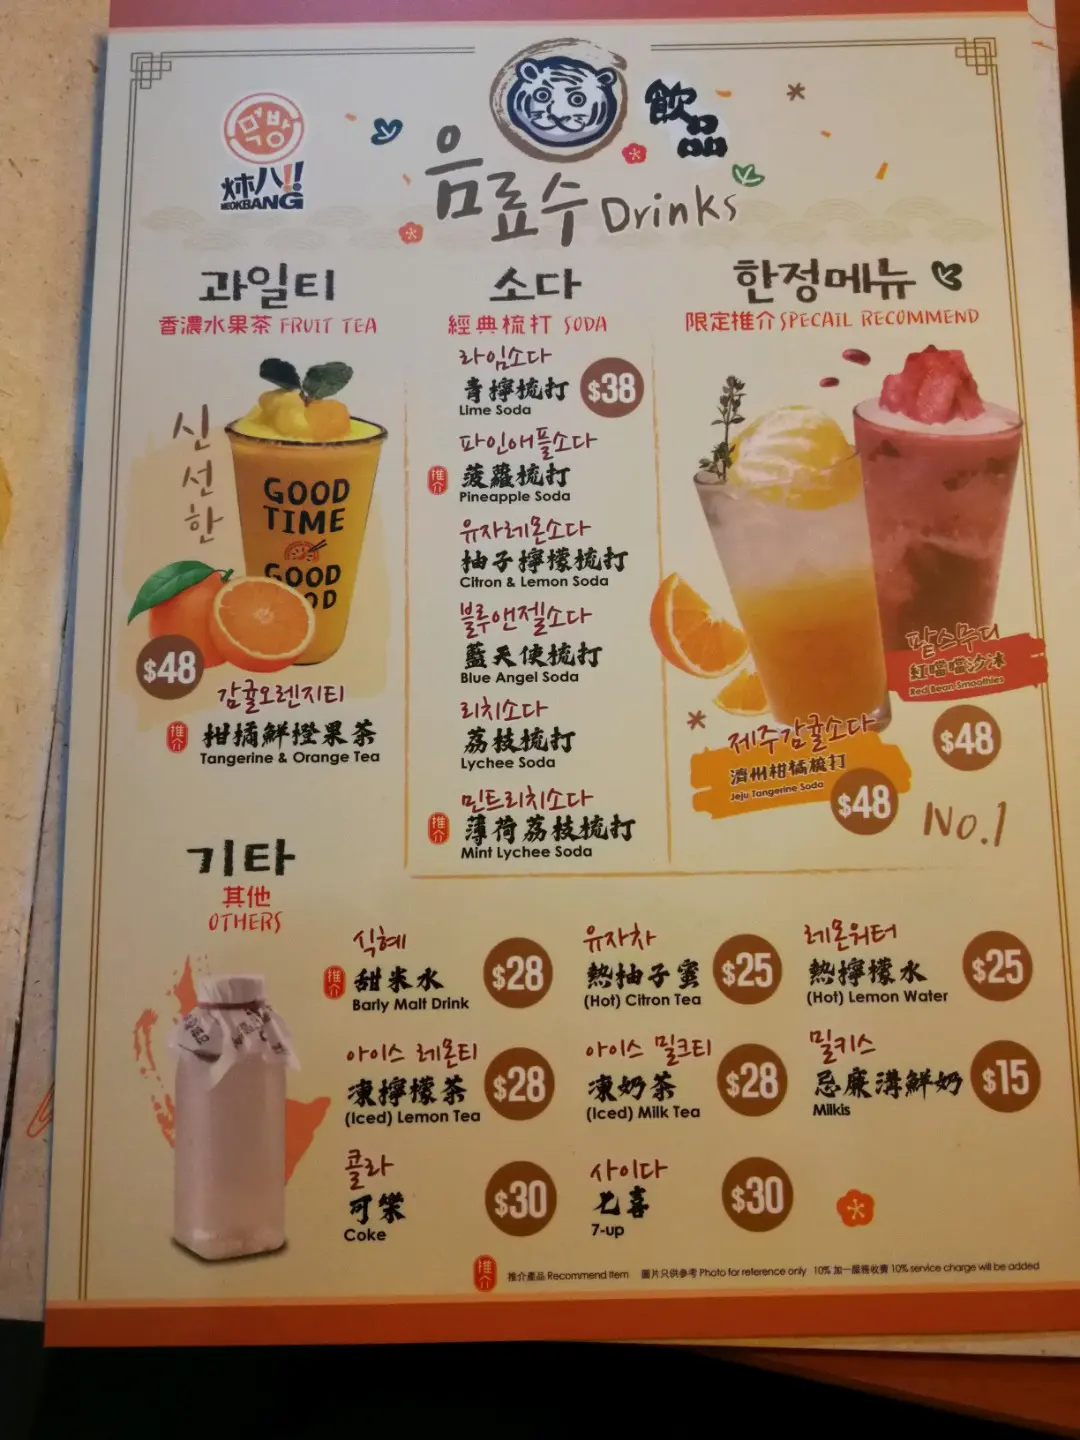 먹방
炑八!!
MEOKBANG
飲品
음료수 Drinks
과일티
香濃水果茶 FRUIT TEA
신선한
GOOD
TIME
GOOD
$48
감귤오렌지티
推介
柑橘鮮橙果茶
Tangerine & Orange Tea
소다
經典梳打 SODA
라임소다
青檸梳打
Lime Soda
$38
파인애플소다
推介
菠蘿梳打
Pineapple Soda
유자레몬소다
柚子檸檬梳打
Citron & Lemon Soda
블루앤젤소다
藍天使梳打
Blue Angel Soda
리치소다
荔枝梳打
Lychee Soda
민트리치소다
推介
薄荷荔枝梳打
Mint Lychee Soda
한정메뉴
限定推介 SPECAIL RECOMMEND
팥스무디
紅噹噹沙冰
Red Bean Smoothies
$48
제주감귤소다
濟州柑橘梳打
Jeju Tangerine Soda
$48
No.1
기타
其他
OTHERS
식혜
推介
甜米水
Barly Malt Drink
$28
유자차
熱柚子蜜
(Hot) Citron Tea
$25
레몬워터
熱檸檬水
(Hot) Lemon Water
$25
아이스 레몬티
凍檸檬茶
(Iced) Lemon Tea
$28
아이스 밀크티
凍奶茶
(Iced) Milk Tea
$28
밀키스
忌廉溝鮮奶
Milkis
$15
콜라
可樂
Coke
$30
사이다
七喜
7-up
$30
推介
推介產品 Recommend Item 圖片只供參考 Photo for reference only 10% 加一服務收費 10% service charge will be added